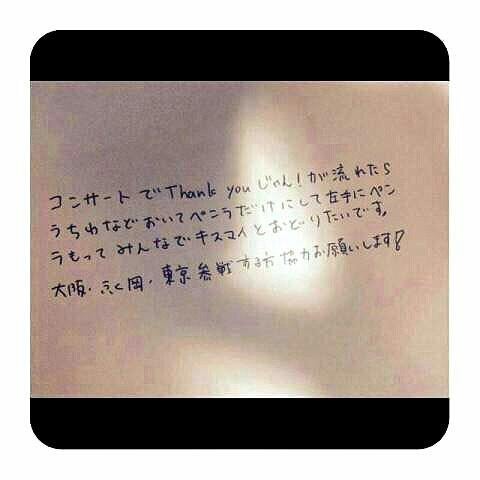 コンサートでThank youじゃん!が流れたら
うちわなどおいてペンラだけにして左手にペン
ラもってみんなでキスマイとおどりたいです。
大阪・ふく岡・東京参戦する方協力お願いします!